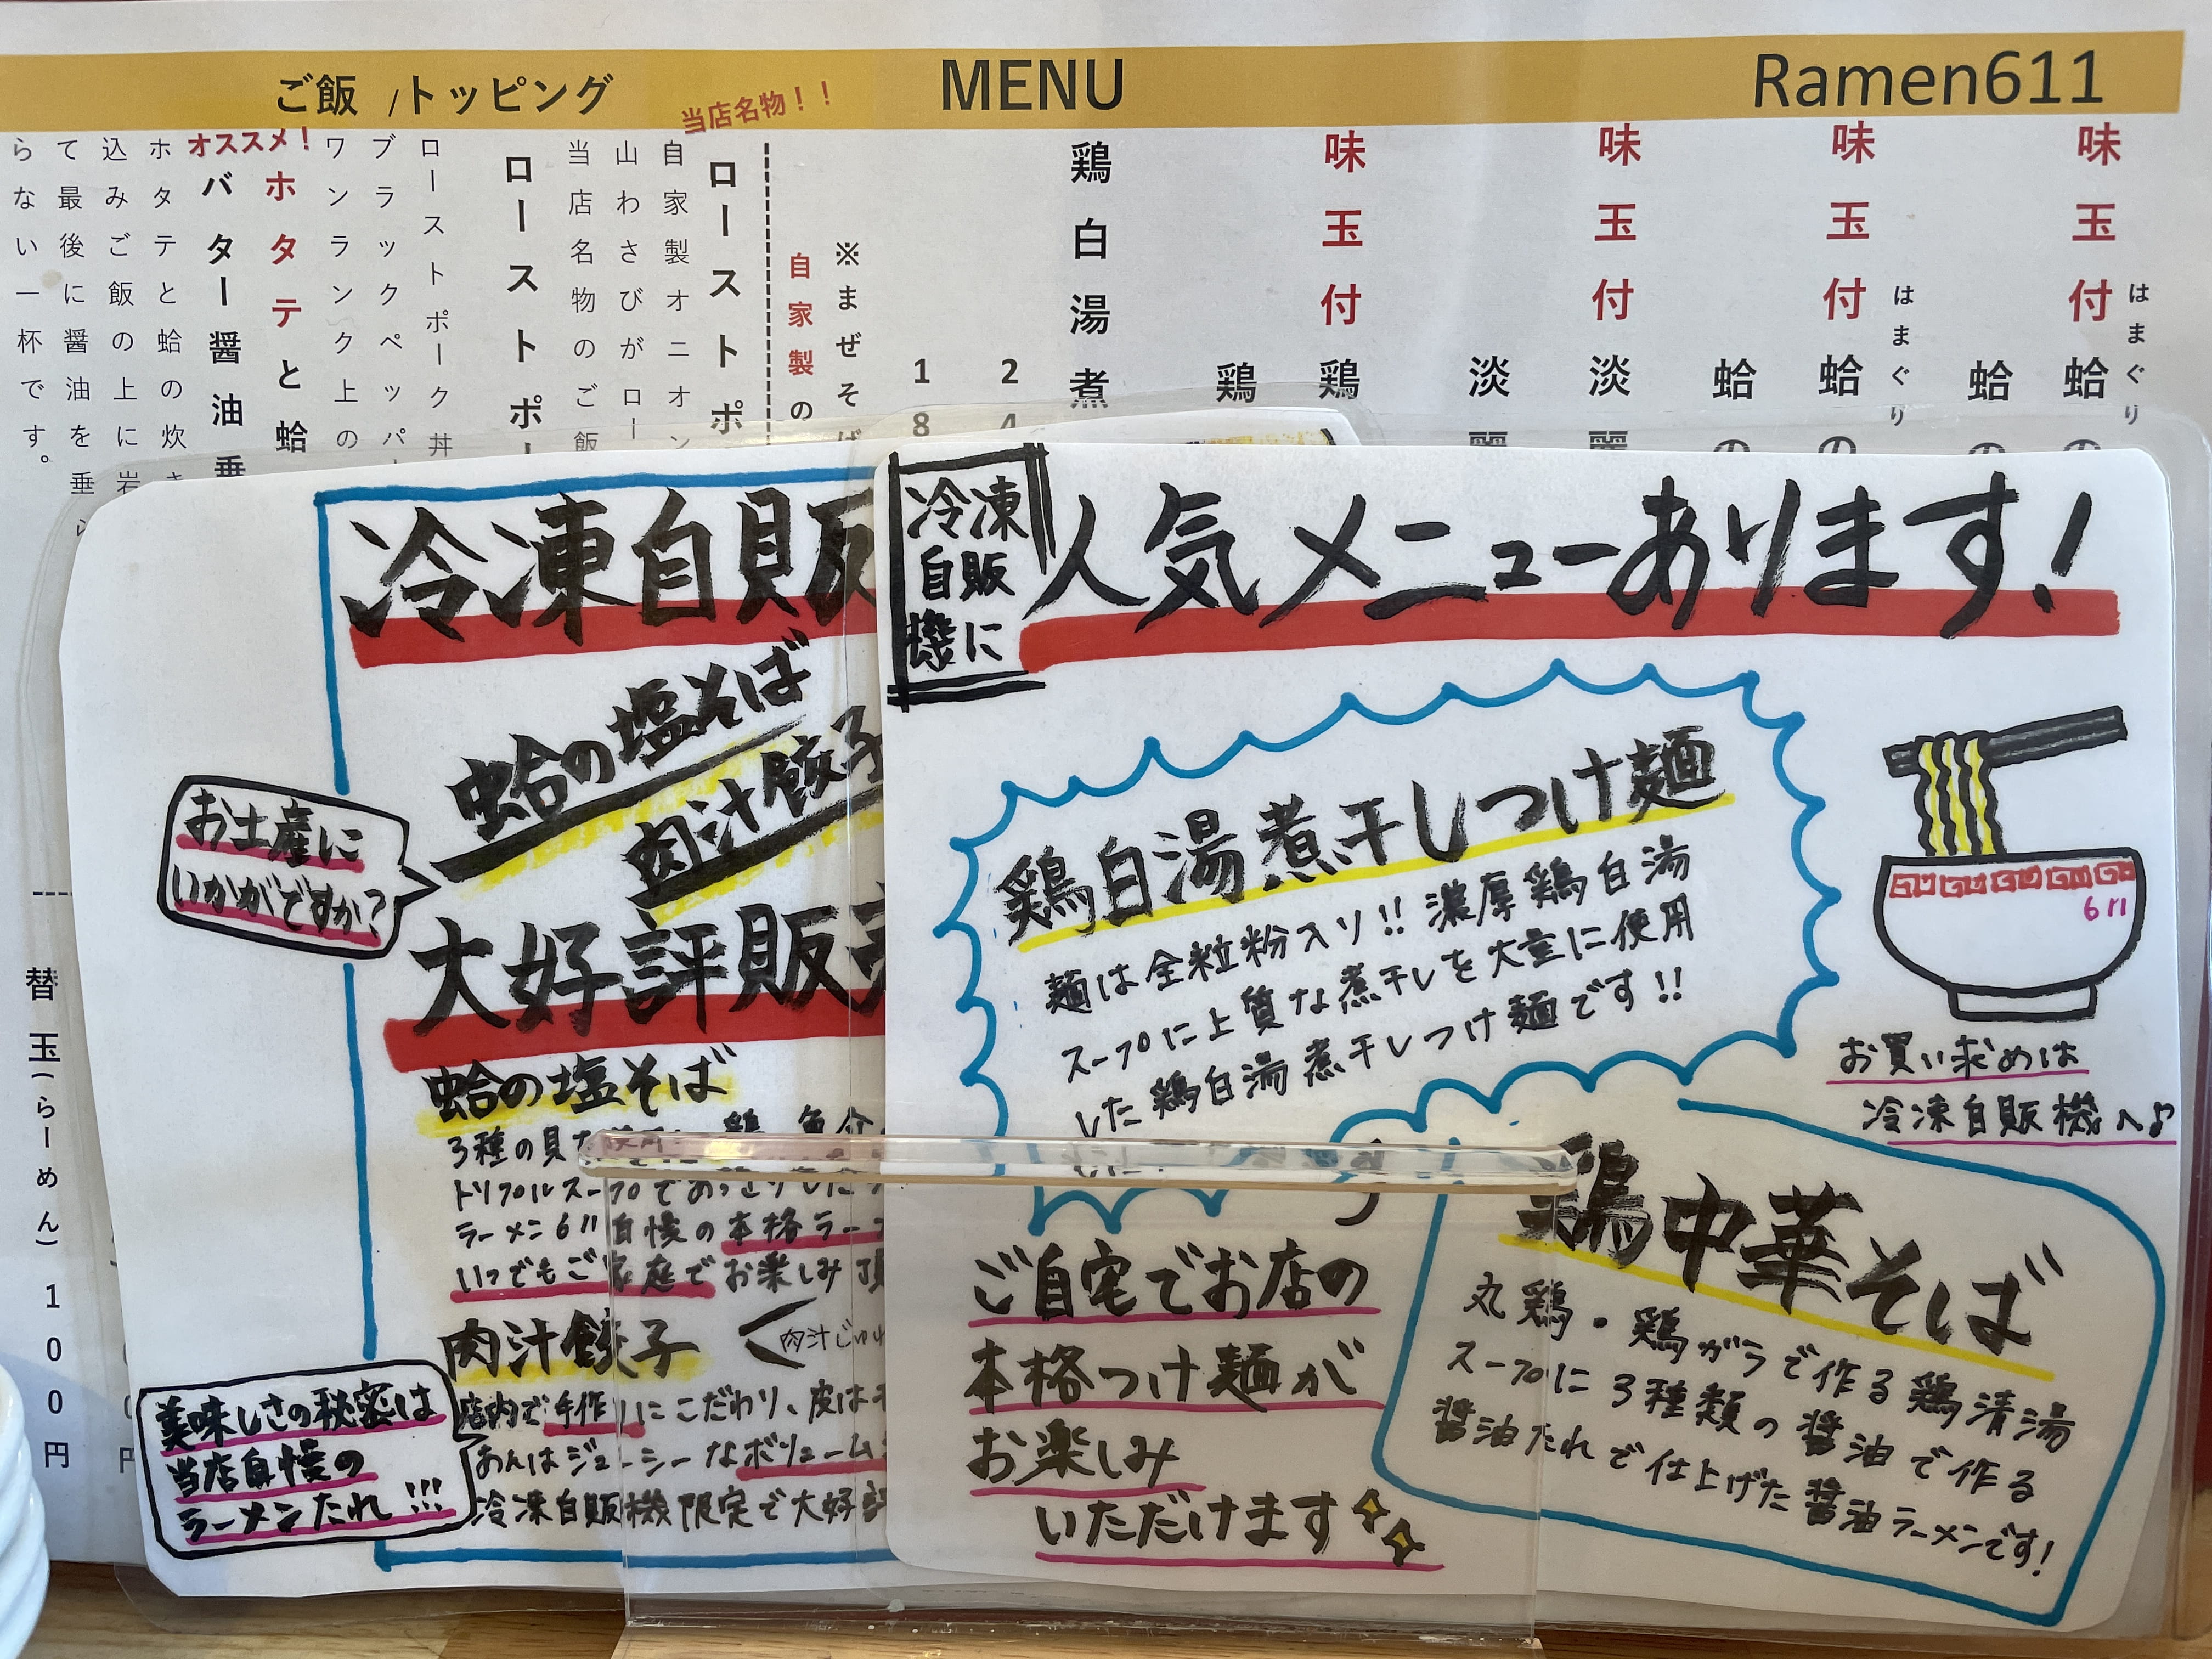 ご飯 /トッピング
MENU
Ramen611
味玉付 蛤の
はまぐり
蛤の
味玉付 蛤の
はまぐり
蛤の
味玉付 淡麗
淡麗
味玉付 鶏
鶏
鶏白湯煮
24
18
※まぜそば
自家製の
当店名物！！
ローストポ
自家製オニオン
山わさびがロー
当店名物のご飯
ローストポー
ローストポーク丼
ブラックペッパー
ワンランク上の
オススメ！
ホタテと蛤
バター醤油垂
ホタテと蛤の炊き
込みご飯の上に岩
て最後に醤油を垂ら
らない一杯です。
替玉(らーめん)100円
冷凍自販
蛤の塩そば
肉汁餃子
お土産に
いかがですか?
大好評販売
蛤の塩そば
3種の貝
トリプルスープであっさりした
ラーメン611自慢の本格ラー
いつでもご家庭でお楽しみ頂
肉汁餃子
肉汁じゅわ
店内で手作りにこだわり、皮はモ
あんはジューシーなボリューム
冷凍自販機限定で大好評
美味しさの秘密は
当店自慢の
ラーメンたれ!!!
冷凍
自販
機に
人気メニューあります!
鶏白湯煮干しつけ麺
麺は全粒粉入り!!濃厚鶏白湯
スープに上質な煮干しを大量に使用
した鶏白湯煮干しつけ麺です!!
611
お買い求めは
冷凍自販機へ♪
ご自宅でお店の
本格つけ麺が
お楽しみ
いただけます
鶏中華そば
丸鶏・鶏ガラで作る鶏清湯
スープに3種類の醤油で作る
醤油たれで仕上げた醤油ラーメンです!